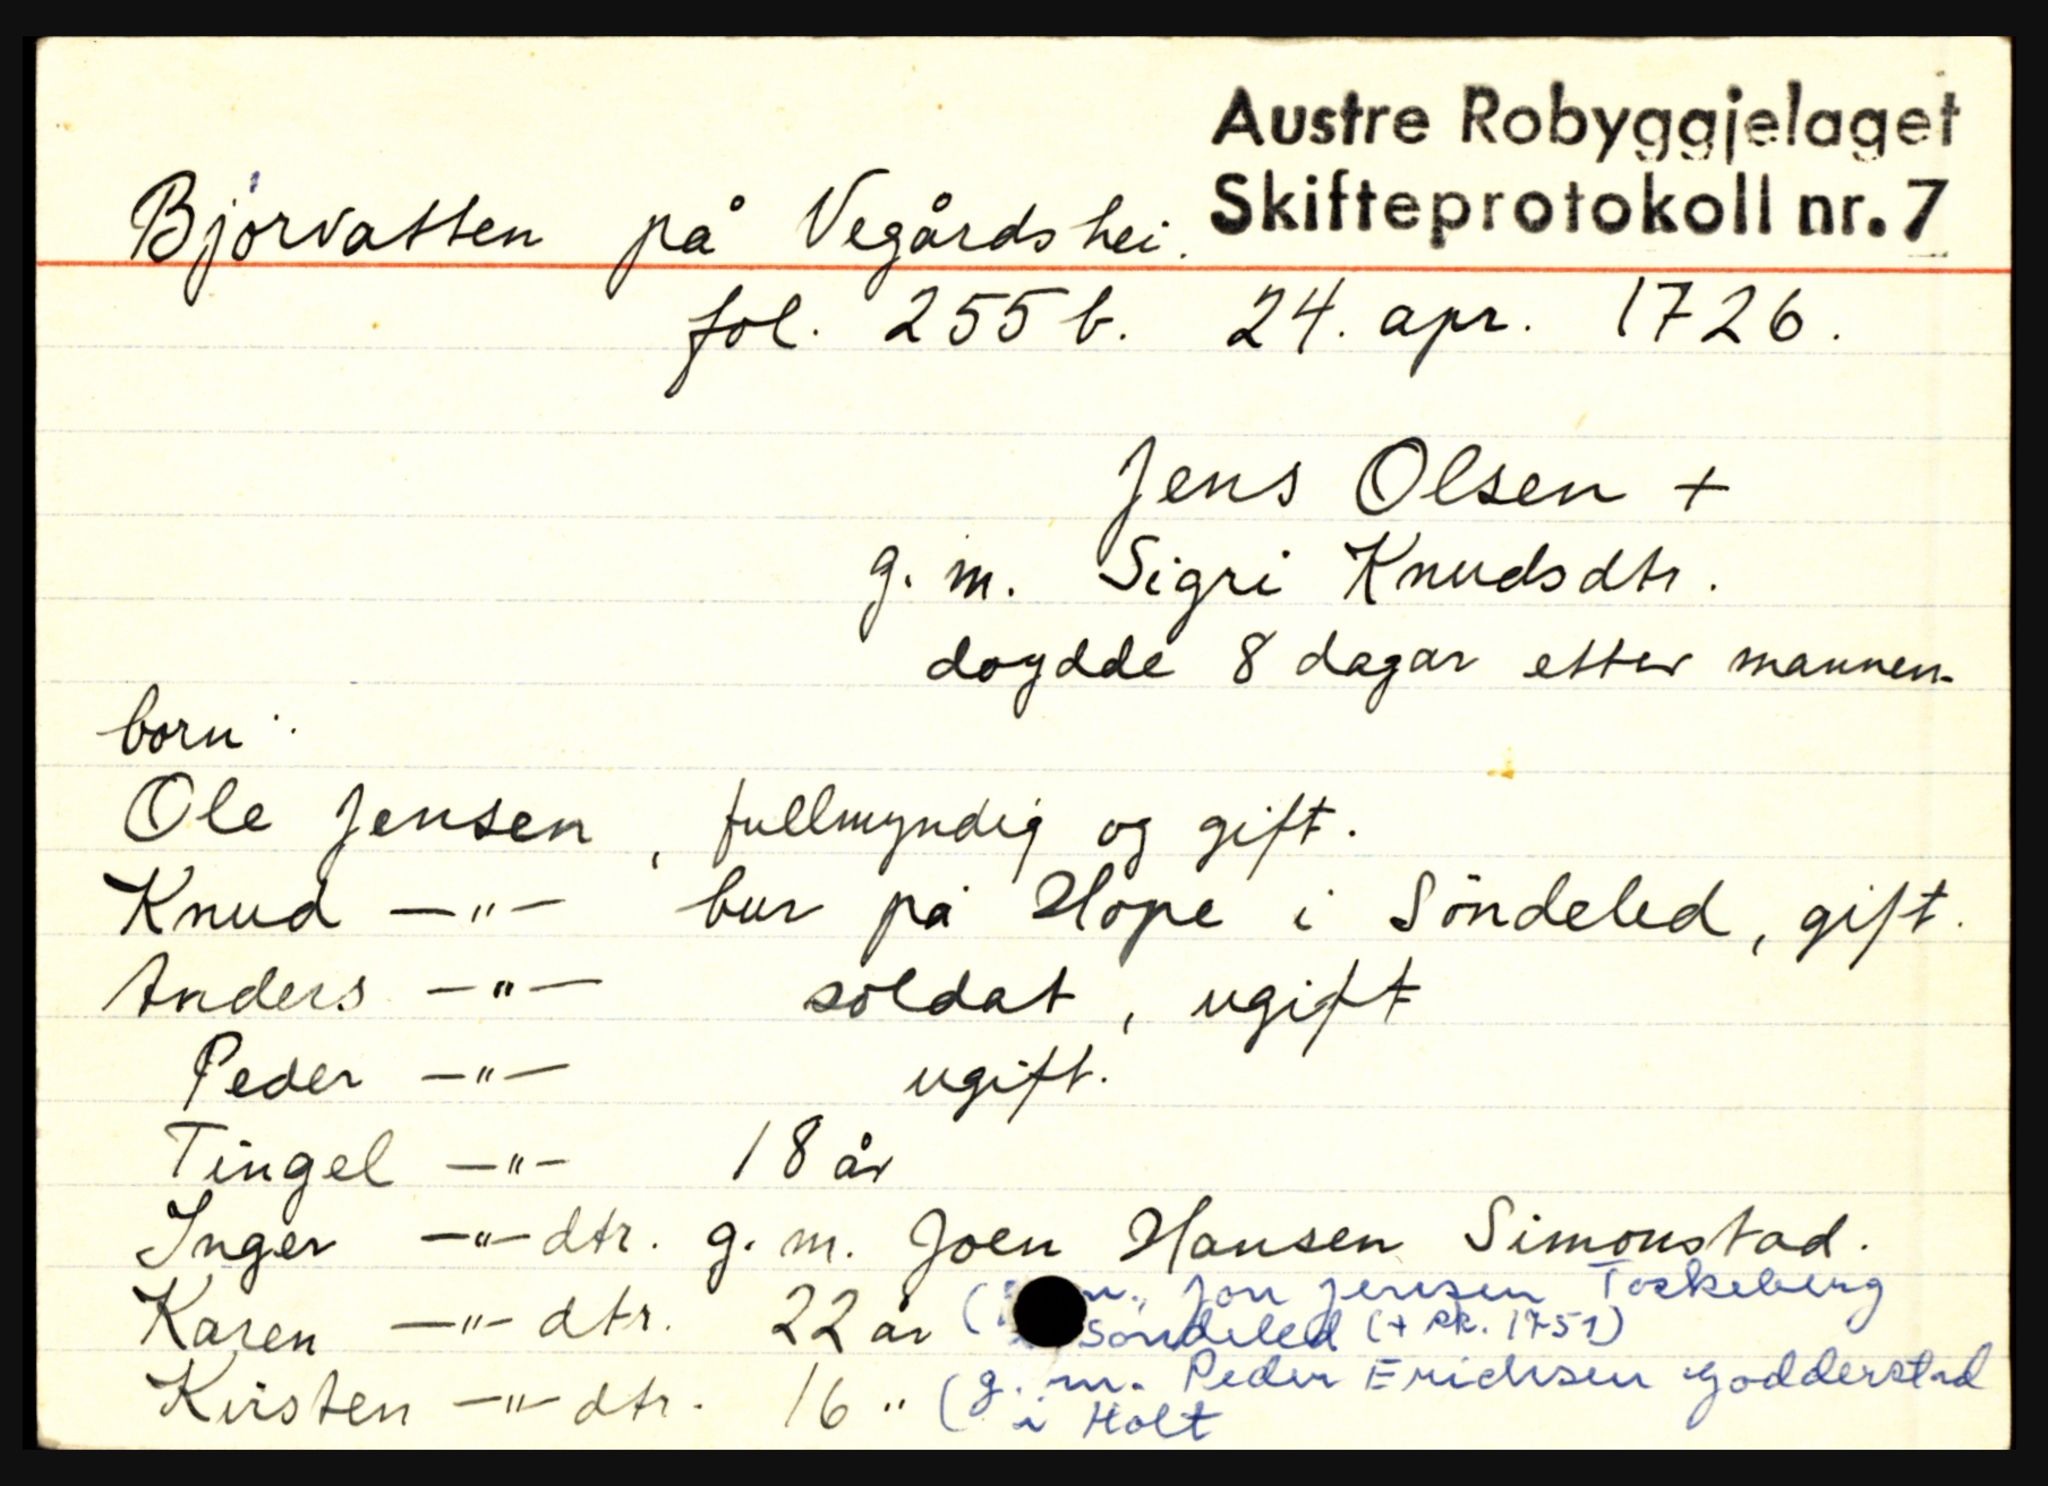 Austre Robyggjelaget
Skifteprotokoll nr. 7
Bjorvatten på Vegårdshei.
fol. 255 b. 24. apr. 1726.
Jens Olsen +
g. m. Sigri Knudsdtr.
doydde 8 dagar etter mannen.
born:
Ole Jensen, fullmyndig og gift.
Knud —"— bur på Hope i Söndeled, gift.
Anders —"— soldat, ugift
Peder —"— ugift.
Tingel —"— 18 år
Inger —"— dtr. g. m. Joen Hansen Simonstad.
Karen —"— dtr. 22 år ( m. Jon Jensen Toskeberg
Söndeled (+ sk. 1751)
Kirsten —"— dtr. 16 " (g. m. Peder Erichsen Godderstad
i Holt